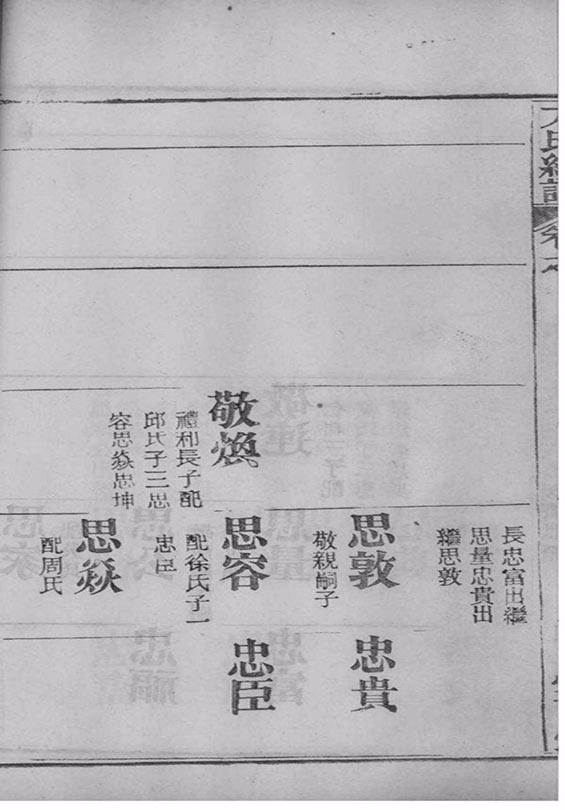 氏
卷之
長忠富出繼
思量忠貴出
繼思敦
思敦
敬親嗣子
忠貴
敬煥
禮和長子配
邱氏子三思
容思焱思坤
思容
配徐氏子一
忠臣
忠臣
思焱
配周氏